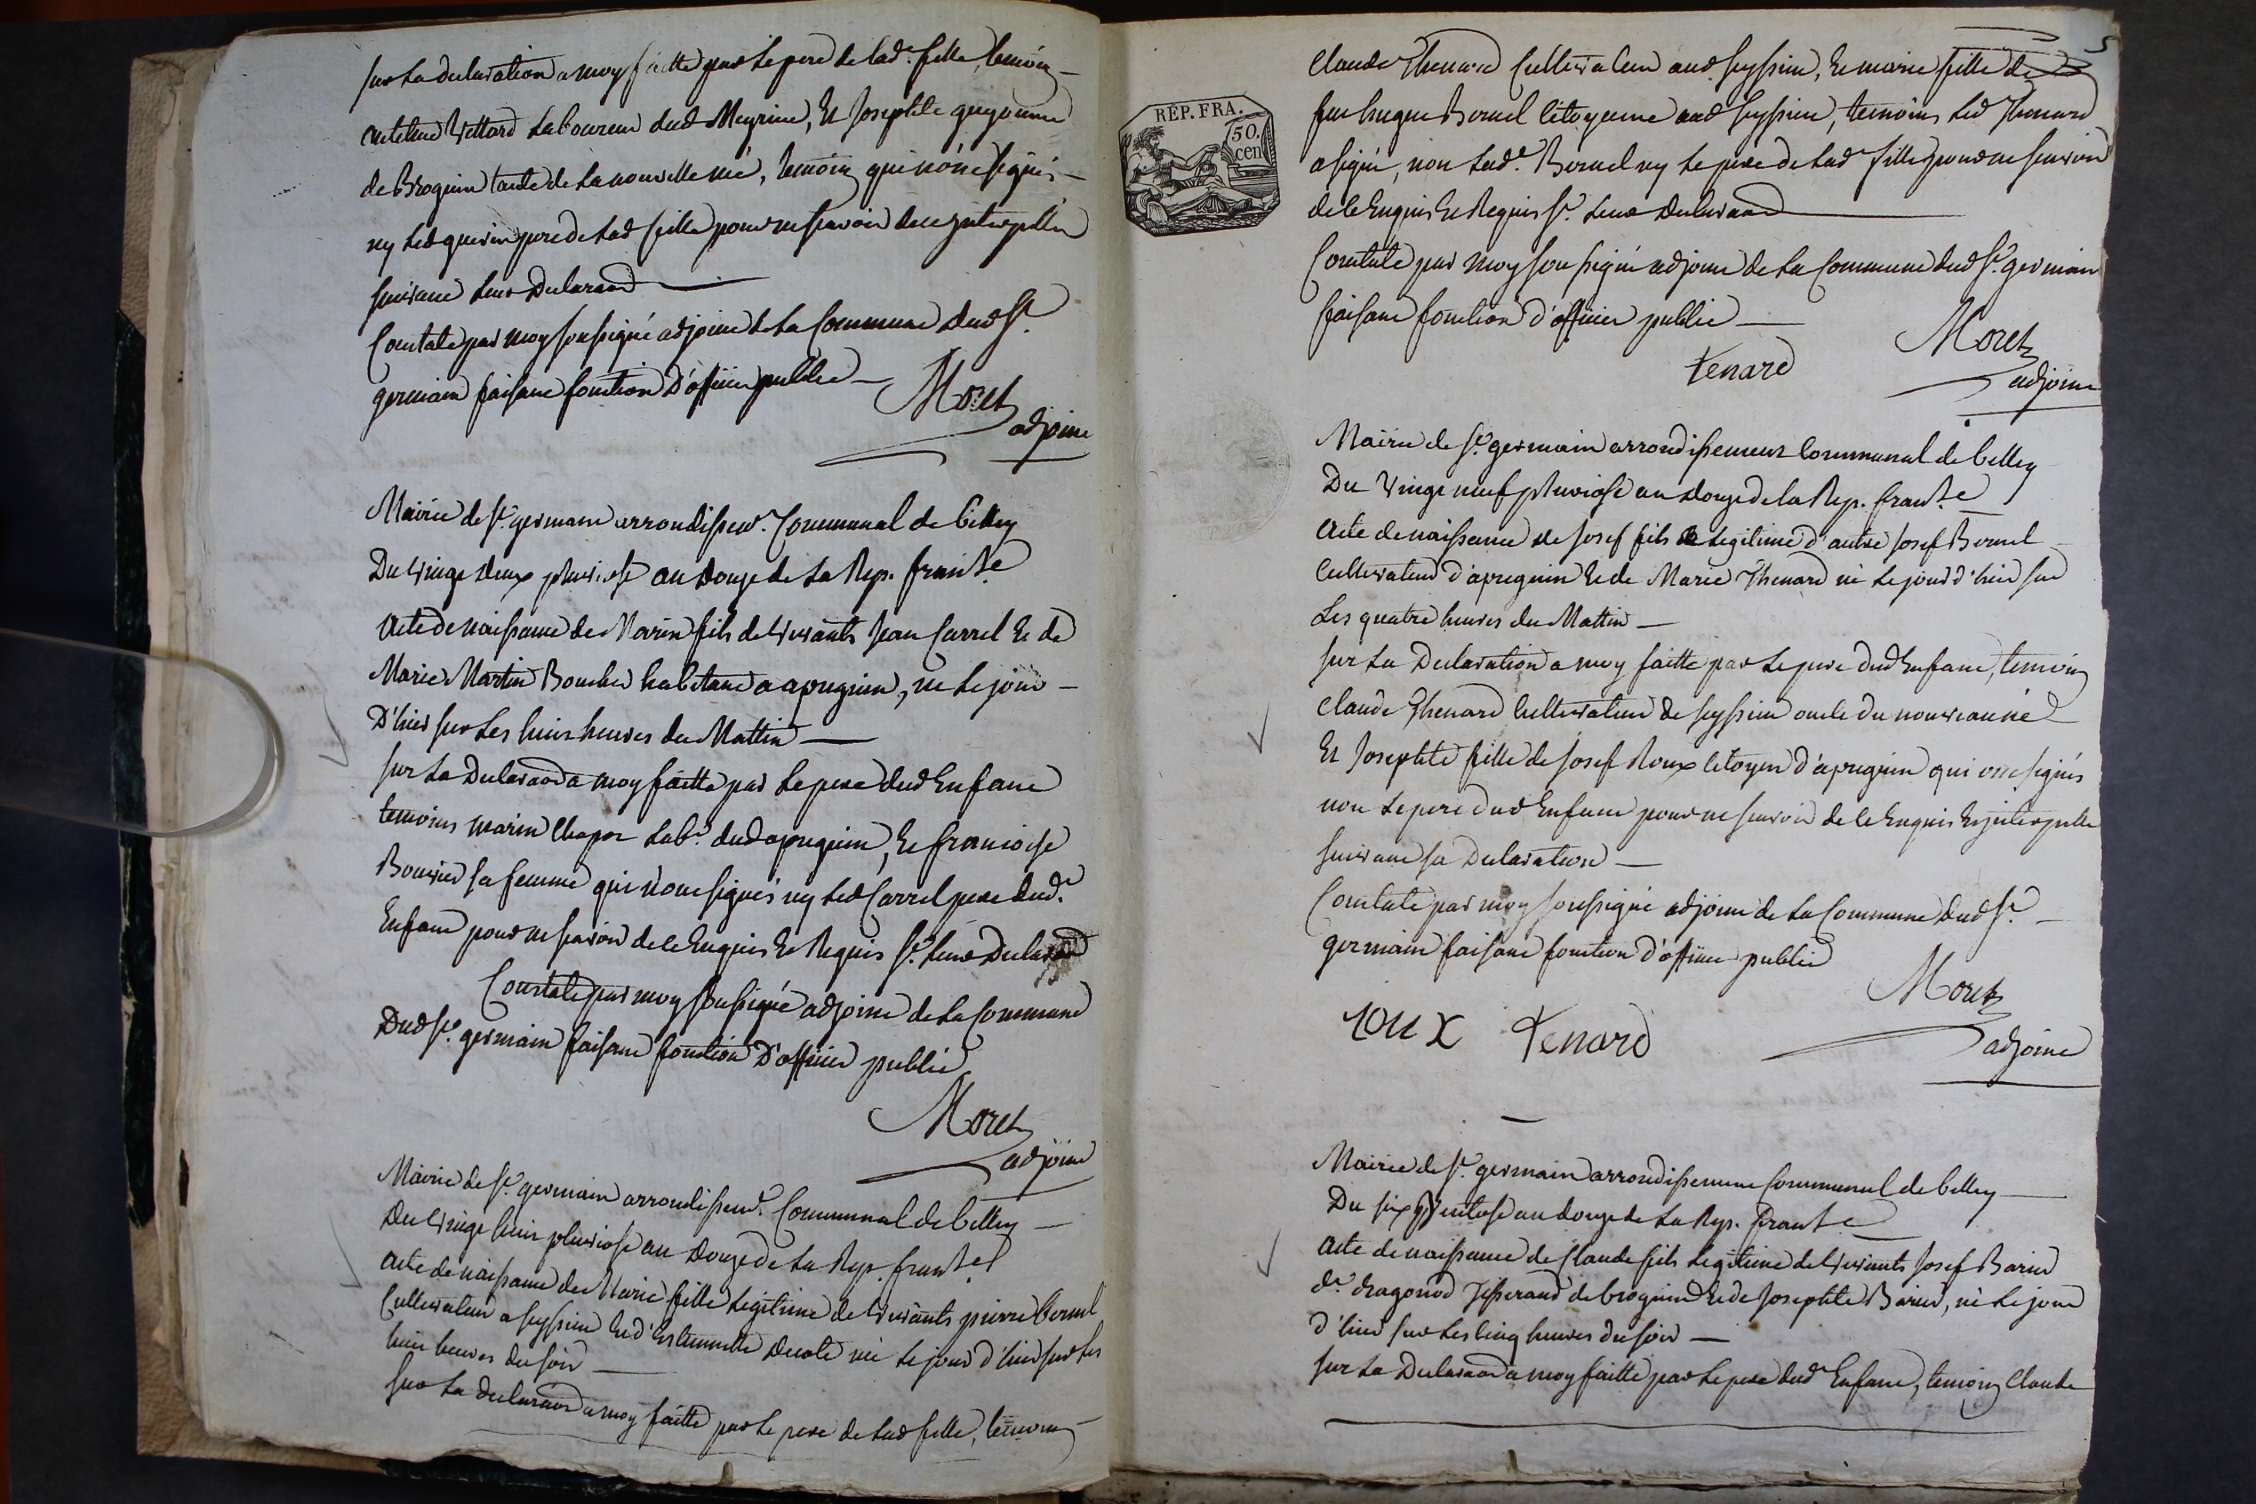 sur La declaration a moy faitte par Le pere de Lad.e fille, temoin
Vettard Laboureur dud Meyrieu, Et Josephte
de Brognin tante de La nouvelle né, temoin qui n'one signés
ny Led guerin pere de Lad fille pour ne scavoir de ce interpellés
suivane Leur Declaraon
Constate par moy soussigné adjoine de La Commune dud St.
germain faisane fonction D'officier public
Moret
adjoine
Mairie de St. germain arrondissem.t Communal de belley
Du Vingt deux pluviose an douze de La Rep. franse
Acte de naissance de Marin fils de Vivants Jean Carrel Et de
Marie Martin Boucher habitans a apregnin, né Le jour
D'hier sur Les huit heures du Mattin
sur La Declaraon a moy faitte par Le pere dud Enfane
temoins marin Chapot Lab.r dud apregnin, Et francoise
Bouvier sa femme qui n'one signés ny Led Carrel pere dud.
Enfane pour ne scavoir de ce Enquis Et Requis St. Leur Declaraon
Constate par moy soussigné adjoine de La Commune
Dud St. germain faisane fonction D'officier public
Moret
adjoine
Mairie de St. germain arrondissem.t Communal de belley
Du Vingt huit pluviose an Douze de La Rep. franse
Acte de naissance de Marie fille Legitime de Vivants pierre bernel
Cultivateur a seyssieu Et d'Estiennette Decote né Le jour d'hier sur Les
huit heures du soir
sur La declaraon a moy faitte par Le pere de Lad fille, temoin
5
Claude Thenard Cultivateur aud. seyssieu, Et marie fille de
feu hugue Bernel Citoyenne aud seyssieu, temoins Led Thenard
a signé, non Lad.e Bernel ny Le pere de Lad.e fille pour ne scavoir
de ce Enquis Et Requis St. Leur Declaraon
REP. FRA.
50.
cen.
Constate par moy soussigné adjoine de La Commune dud St. germain
faisane fonction d'officier public
Moret
tenard
adjoine
Mairie de St. germain arrondissement Communal de belley
Du Vingt neuf pluviose an douze de la Rep. franse
Acte de naissance de Josef fils Legitime d'autre Josef Bernel
Cultivateur d'apregnin Et de Marie Thenard né Le jour d'hier sur
Les quatre heures du Mattin
sur La Declaration a moy faitte par Le pere dud Enfane, temoin
Claude Thenard Cultivateur de seyssieu oncle du nouveau né
Et Josephte fille de Josef Roux Citoyen d'apregnin qui one signés
non Le pere dud Enfane pour ne scavoir de ce Enquis Et interpellé
suivane sa Declaration
Constate par moy soussigné adjoine de La Commune dud St.
germain faisane fonction d'officier public
Moret
roux tenard
adjoine
Mairie de St. germain arrondissement Communal de belley
Du six Ventose an douze de La Rep. franse
Acte de naissance de Claude fils Legitime de Vivants Josef Barin
dt. dragonod Tisserand de brognin Et de Josephte Barin, né Le jour
d'hier sur Les cinq heures du soir
sur La Declaraon a moy faitte par Le pere dud.t Enfane, temoin Claude